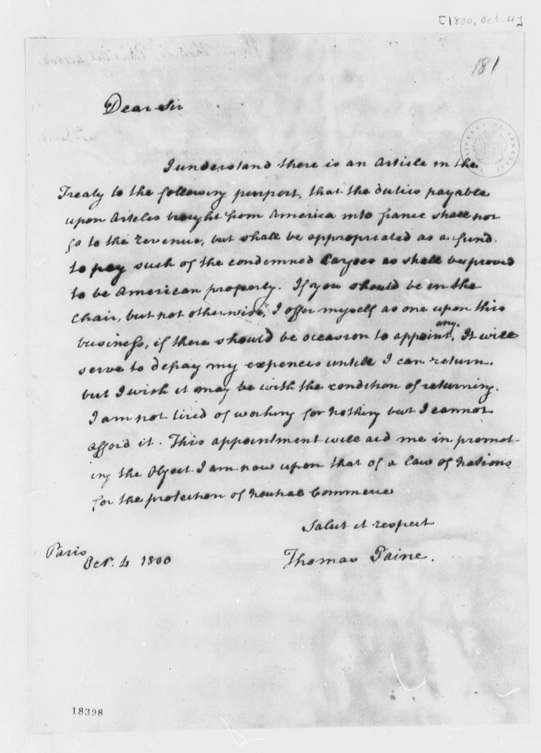 [1800, Oct. 4]
181
Dear Sir
I understand there is an Article in the
Treaty to the following purport, that the duties payable
upon Articles brought from America into france shall not
go to the revenue, but shall be appropriated as a fund.
to pay such of the condemned Cargoes as shall be proved
to be American property. If you should be in the
Chair, but not otherwise, I offer myself as one upon this
business, if there should be occasion to appoint any. It will
serve to defray my expences untill I can return.
but I wish it may be with the condition of returning.
I am not tired of working for nothing but I cannot
afford it. This appointment will aid me in promot-
ing the Object I am now upon that of a law of Nations
for the protection of Neutral Commerce
Salut et respect
Paris Oct. 4 1800
Thomas Paine.
18398